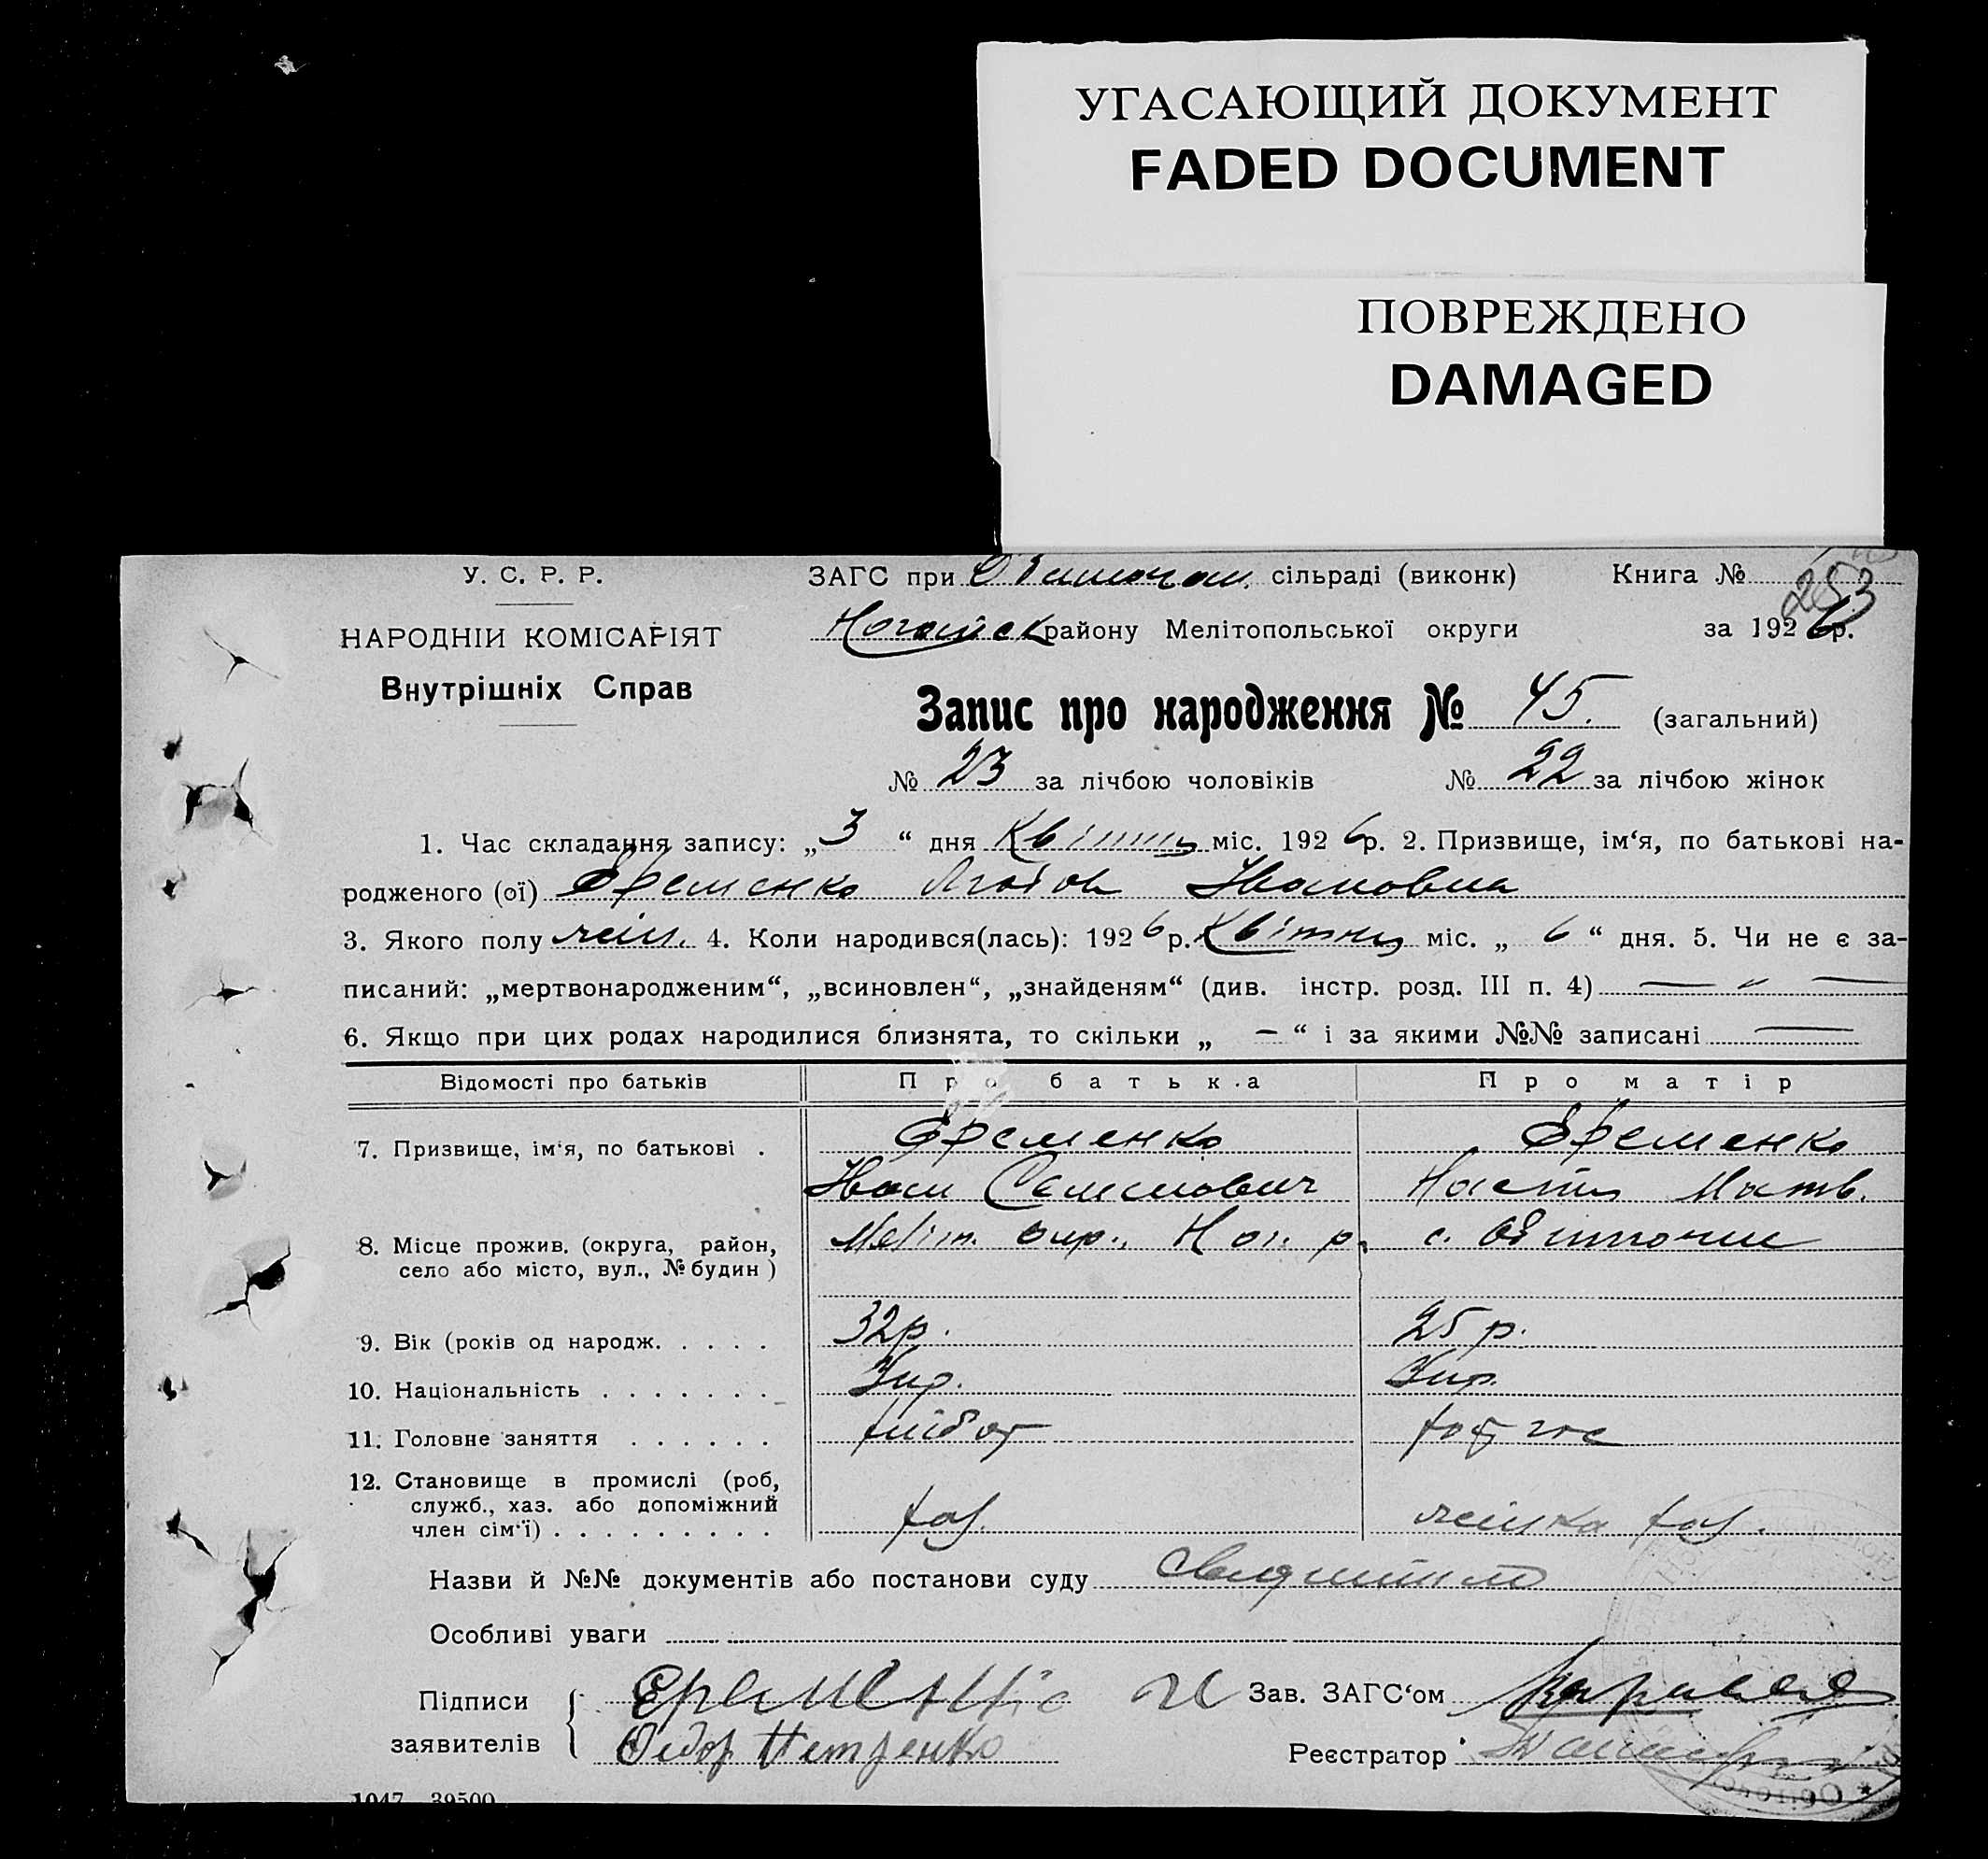 УГАСАЮЩИЙ ДОКУМЕНТ
FADED DOCUMENT
ПОВРЕЖДЕНО
DAMAGED
У. С. Р. Р.
НАРОДНІЙ КОМІСАРІЯТ
Внутрішніх Справ
ЗАГС при сільраді (виконк) Книга № 253
Ногайськ району Мелітопольської округи за 1926 р.
Запис про народження № 45. (загальний)
№ 23 за лічбою чоловіків № 22 за лічбою жінок
1. Час складання запису: „3“ дня Квітня міс. 1926 р. 2. Призвище, ім‘я, по батькові на-
родженого (ої) Єременко Любов Ивановна
3. Якого полу жін. 4. Коли народився(лась): 1926 р. Квітня міс. „ 6 “ дня. 5. Чи не є за-
писаний: „мертвонародженим“, „всиновлен“, „знайденям“ (див. інстр. розд. III п. 4) — „ —
6. Якщо при цих родах народилися близнята, то скільки „ — “ і за якими №№ записані —
Відомості про батьків Про батька Про матір
7. Призвище, ім‘я, по батькові . Єременко Єременко
Иван Семенович Настя Матв.
8. Місце прожив. (округа, район, Меліт. окр., Ног. р. с. Обиточне
село або місто, вул., № будин )
9. Вік (років од народж. . . . . 32 р. 25 р.
10. Національність . . . . . . . Укр. Укр.
11. Головне заняття . . . . . . хлібор
12. Становище в промислі (роб,
служб., хаз. або допоміжний
член сім‘ї) . . . . . . . . . хаз. жінка хаз.
Назви й №№ документів або постанови суду
Особливі уваги
Підписи Зав. ЗАГС‘ом
заявителів Федор Петренко Реєстратор
1047 39500